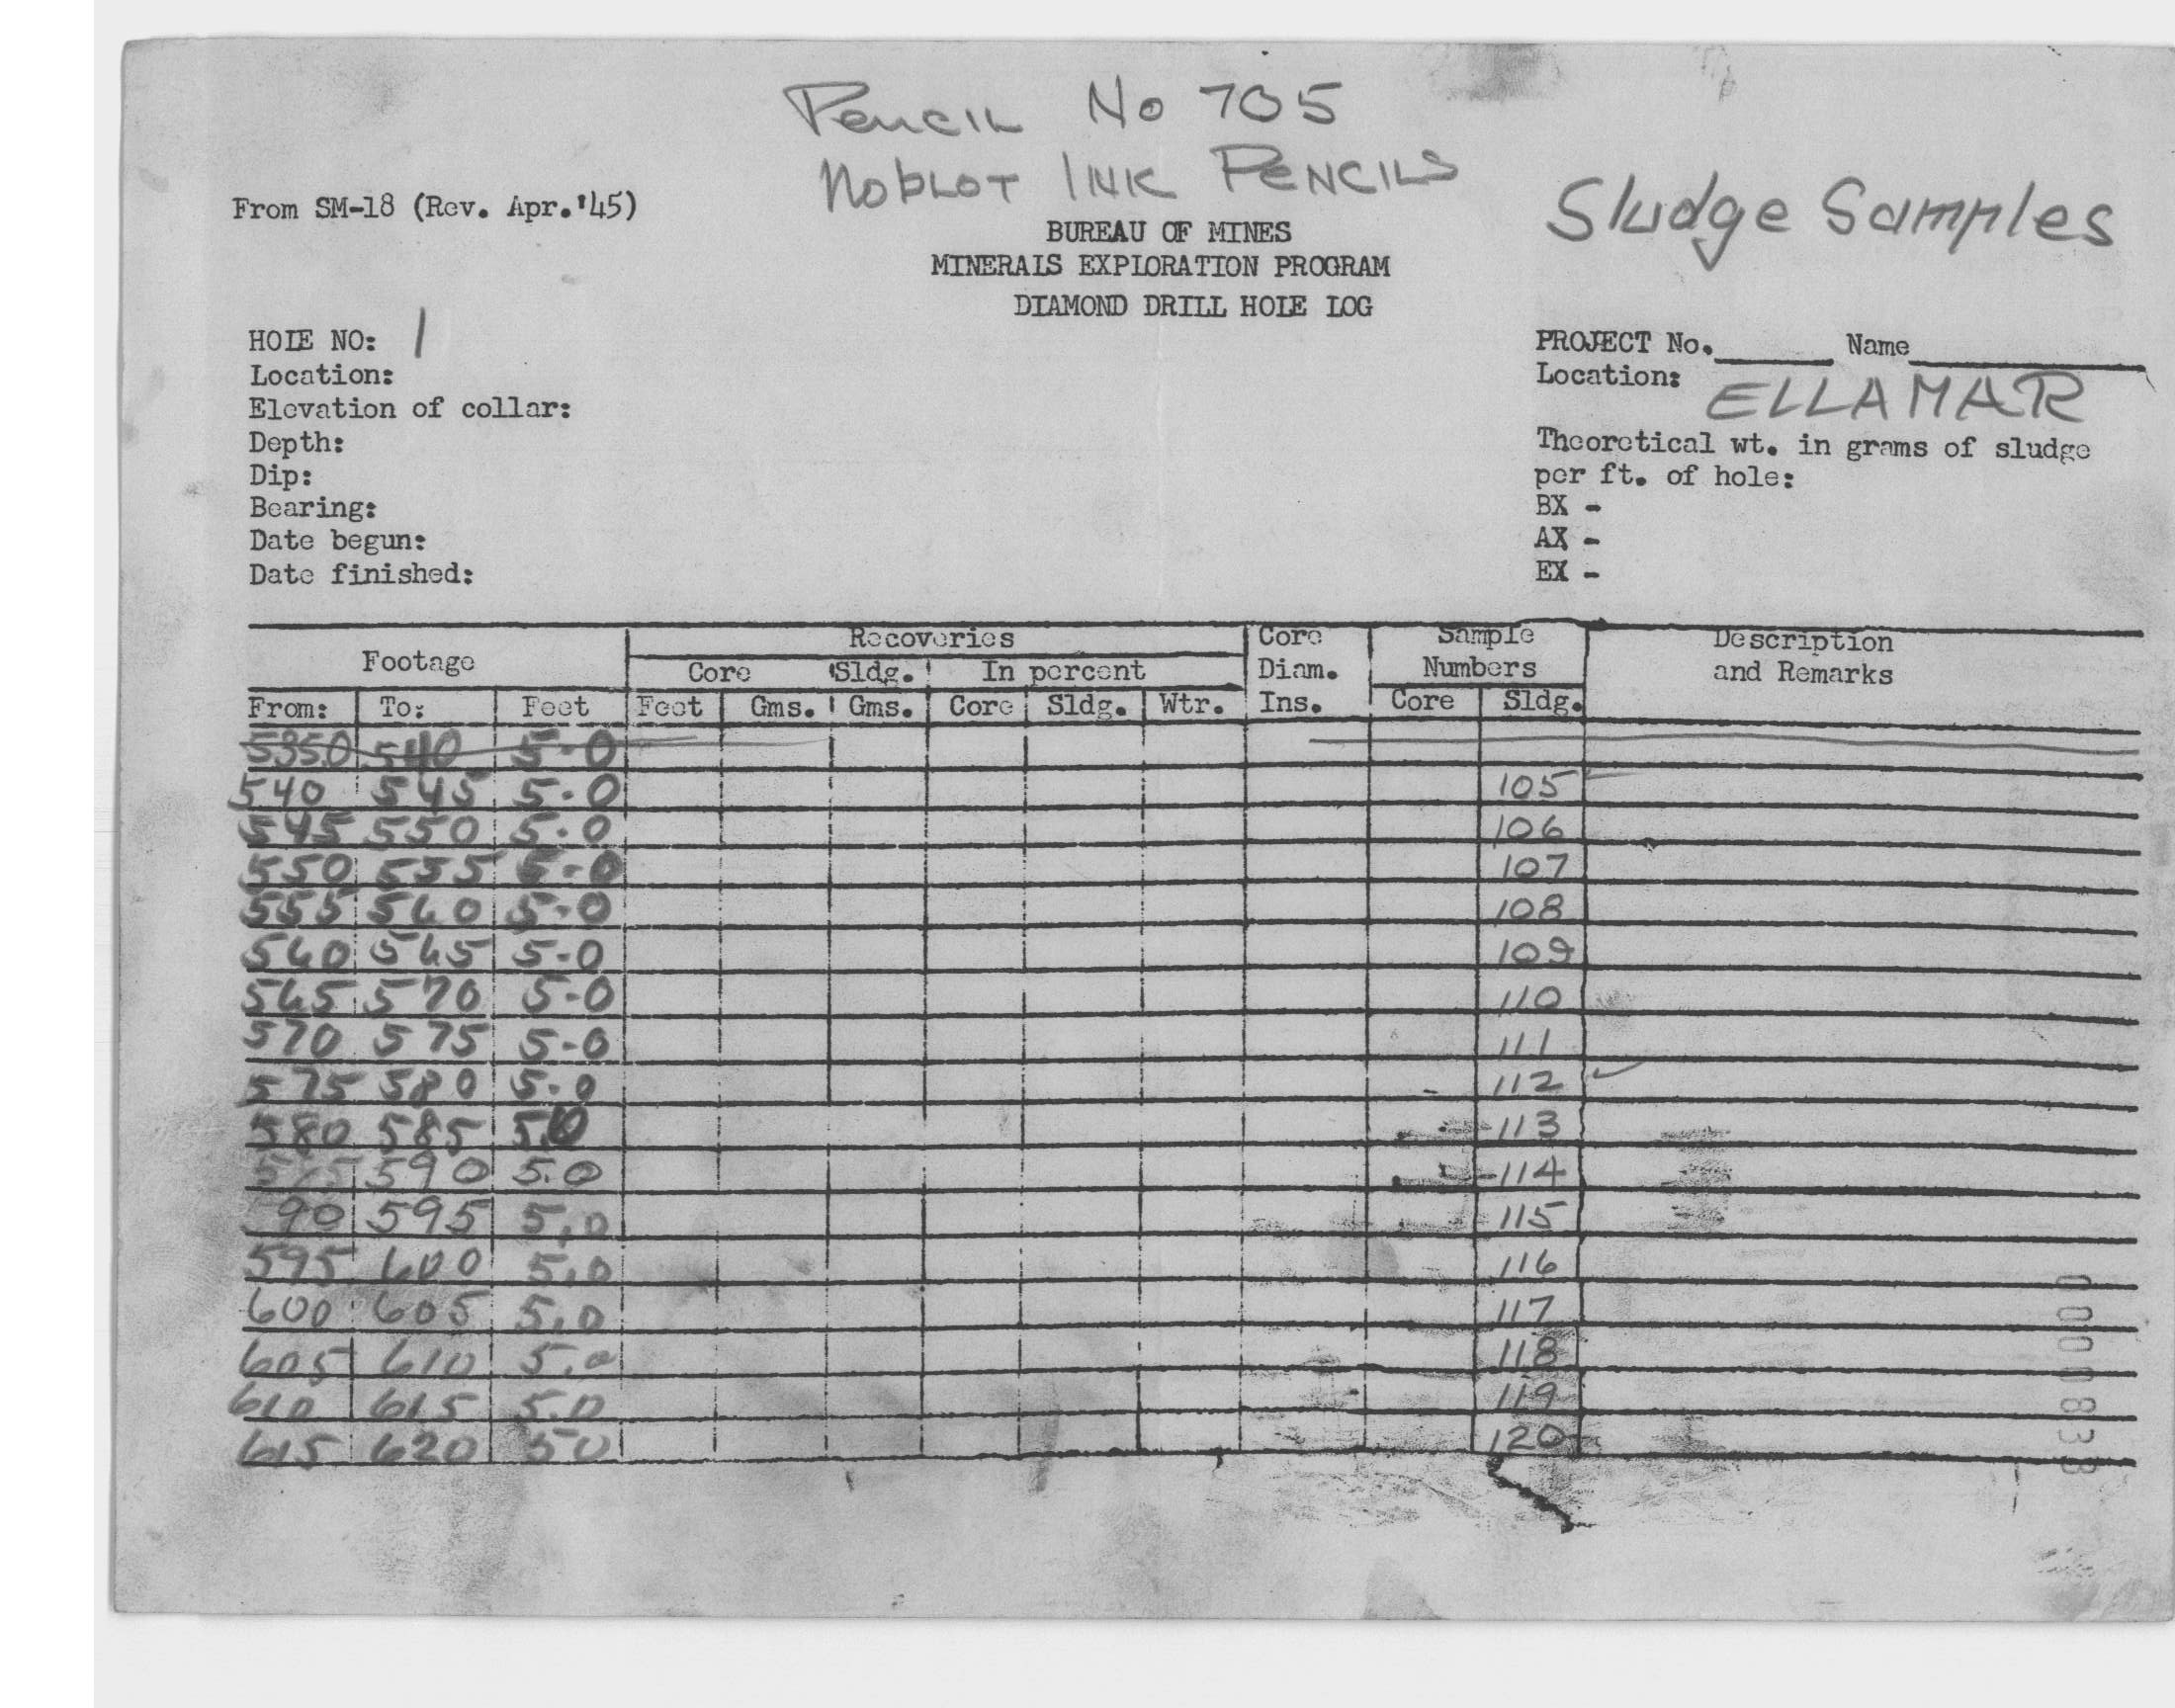 Pencil No 705
Noblot INK PENCILS
From SM-18 (Rev. Apr.'45)
Sludge Samples
BUREAU OF MINES
MINERALS EXPLORATION PROGRAM
DIAMOND DRILL HOLE LOG
HOLE NO: 1
PROJECT No. Name
Location:
Location: ELLAMAR
Elevation of collar:
Depth:
Theoretical wt. in grams of sludge
Dip:
per ft. of hole:
Bearing:
BX -
Date begun:
AX -
Date finished:
EX -
Footage Recoveries Core Diam. Ins. Sample Numbers Description and Remarks
Core Sldg. In percent
From: To: Feet Feet Gms. Gms. Core Sldg. Wtr. Core Sldg.
535.0 540 5-0
540 545 5-0 105
545 550 5-0 106
550 555 5-0 107
555 560 5-0 108
560 565 5-0 109
565 570 5-0 110
570 575 5-0 111
575 580 5-0 112
580 585 5.0 113
585 590 5.0 114
90 595 5.0 115
595 600 5.0 116
600 605 5.0 117
605 610 5.0 118
610 615 5.0 119
615 620 50 120
0000833